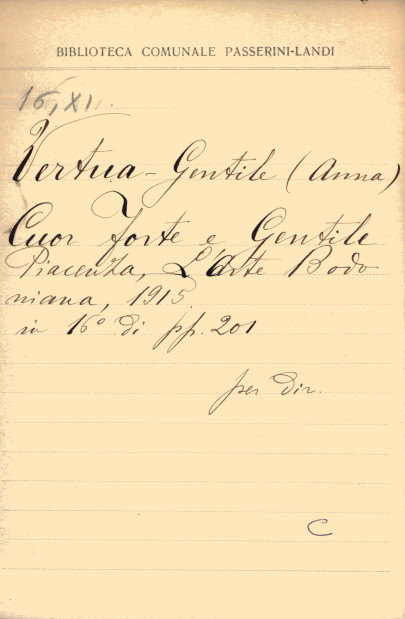 BIBLIOTECA COMUNALE PASSERINI-LANDI
16, XI.
Vertua - Gentile (Anna)
Cuor forte e Gentile
Piacenza, L'Arte Bodo
niana, 1915.
in 16° di pp. 201
per dir.
C